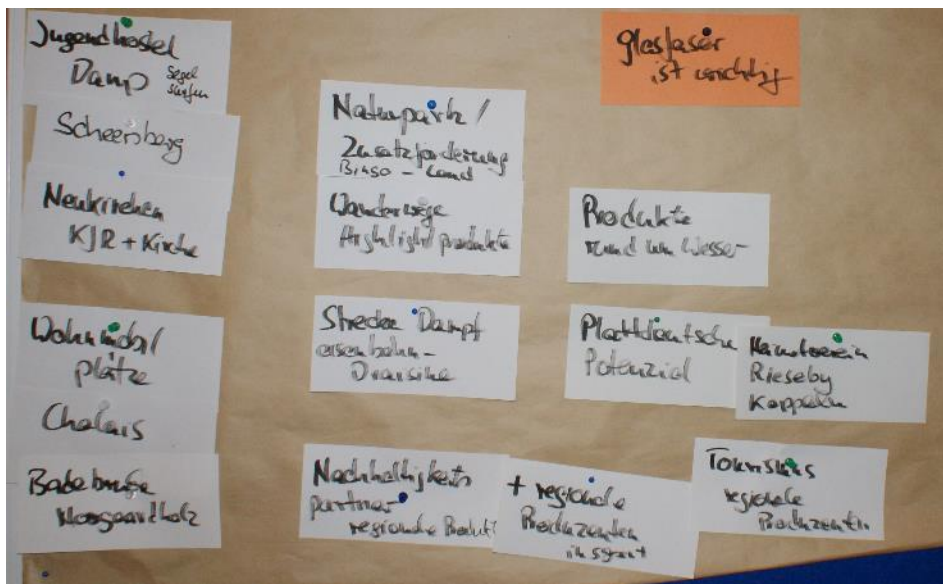 Jugendhostel
Damp Segel
surfen
Scheersberg
Neukirchen
KJR + Kirche
Wohnmobil/
plätze
Chalais
Badebrücke
Naturpark /
Zusatzförderung
Wanderwege
Highlightprodukte
Strecke Dampf
eisenbahn-
Draisine
Nachhaltigkeits
partner
regionale Produkt
+ regionale
Produzenten
insgesamt
glasfaser
ist wichtig
Produkte
rund um Wasser
Plattdeutsche
Potenzial
Heimatverein
Rieseby
Kappeln
Tourismus
regionale
Produzenten